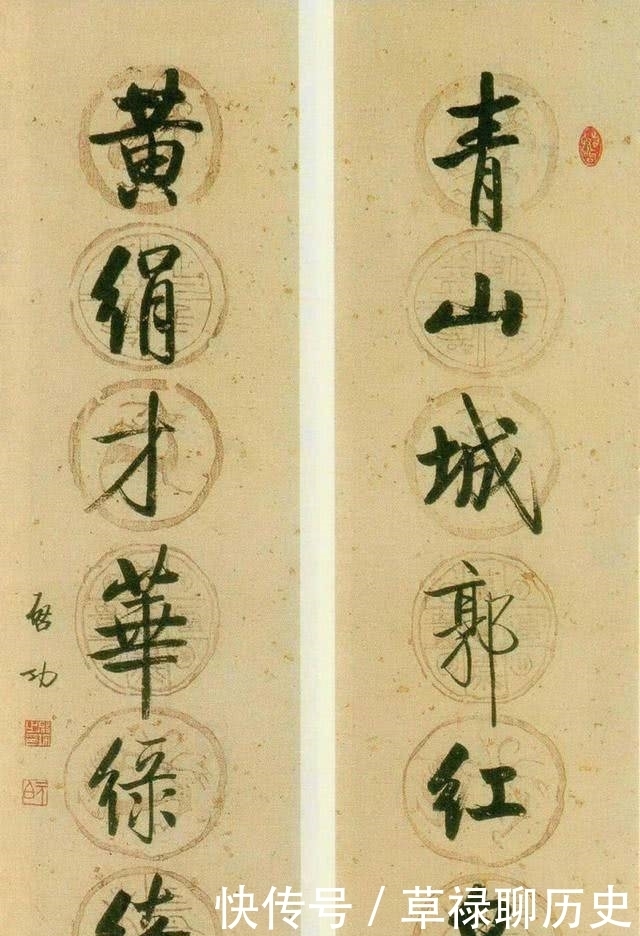 青山城郭红
黄绢才華绿
启功
快传号 / 草禄聊历史